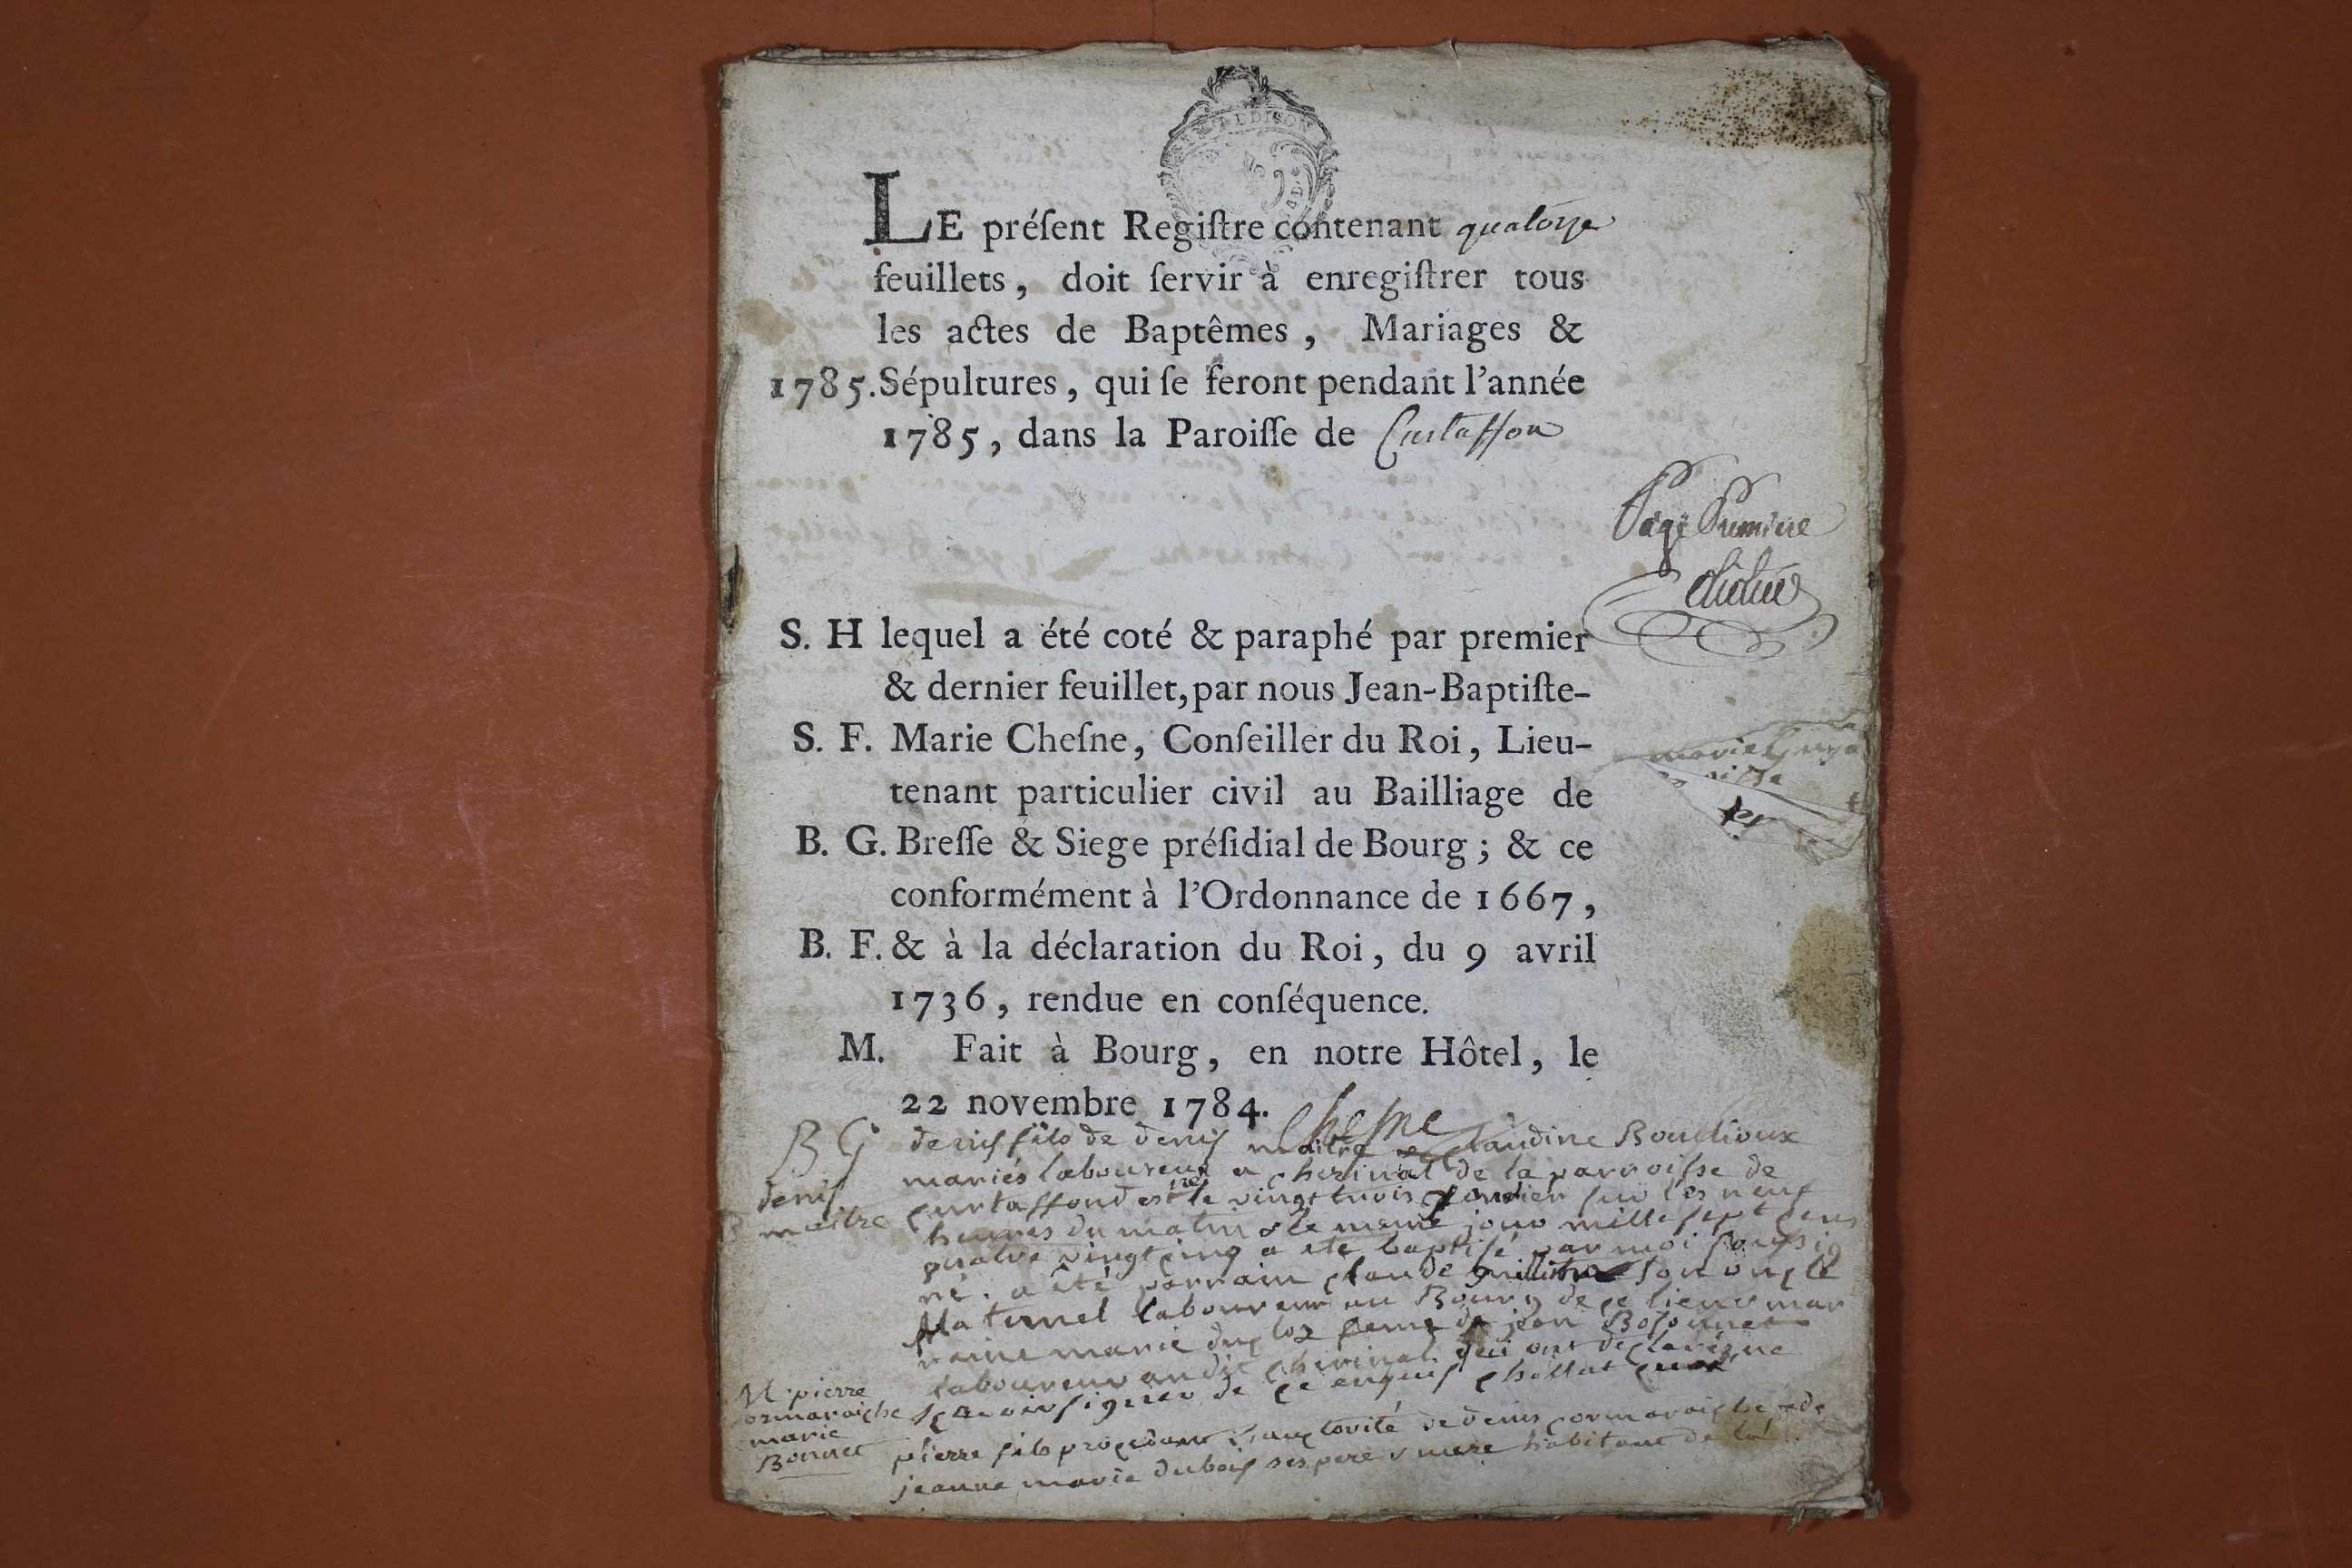 LE préſent Regiſtre contenant quatorze
feuillets, doit ſervir à enregiſtrer tous
les actes de Baptêmes, Mariages &
1785. Sépultures, qui ſe feront pendant l'année
1785, dans la Paroiſſe de Curtaffon
Page Premiere
S. H lequel a été coté & paraphé par premier
& dernier feuillet, par nous Jean-Baptiſte-
S. F. Marie Cheſne, Conſeiller du Roi, Lieu-
tenant particulier civil au Bailliage de
B. G. Breſſe & Siege préſidial de Bourg; & ce
conformément à l'Ordonnance de 1667,
B. F. & à la déclaration du Roi, du 9 avril
1736, rendue en conſéquence.
M. Fait à Bourg, en notre Hôtel, le
22 novembre 1784.
Cheſne
B G
denis
maitre
denis fils de denis maitre & claudine Boudioux
mariés laboureur a cherinal de la parroisse de
curtaffond est né le vingt trois janvier sur les neuf
heures du matin & le meme jour mille sept cens
quatre vingt cinq a eté baptisé par moi soussig
né. a été parrain claude son oncle
Maternel laboureur au Bourg de ce lieu & mar
raine marie femme de jean
laboureur audit cherinal qui ont declaré ne
sçavoir signer de ce enquis chossat curé
M. pierre
cormaraiche
marie
Bonnet
pierre fils procedant de l'auctorité de denis cormaraiche & de
jeanne marie dubois ses pere & mere habitant de la